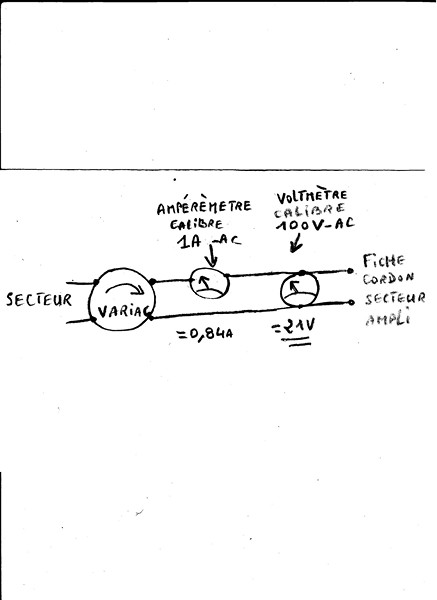 AMPÉRÈMETRE
CALIBRE
1A -AC
VOLTMÈTRE
CALIBRE
100V-AC
SECTEUR
VARIAC
FICHE
CORDON
SECTEUR
AMPLI
=0,84A
=21V